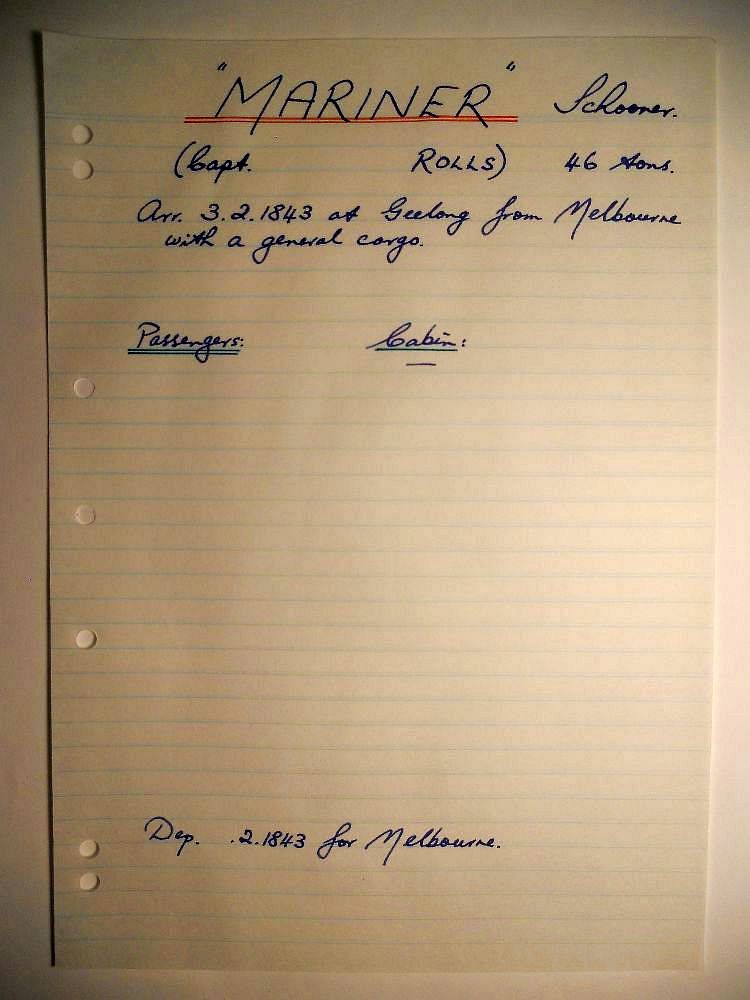 "MARINER" Schooner.
(Capt. ROLLS) 46 tons.
Arr. 3.2.1843 at Geelong from Melbourne
with a general cargo.
Passengers: Cabin:
—
Dep. .2.1843 for Melbourne.